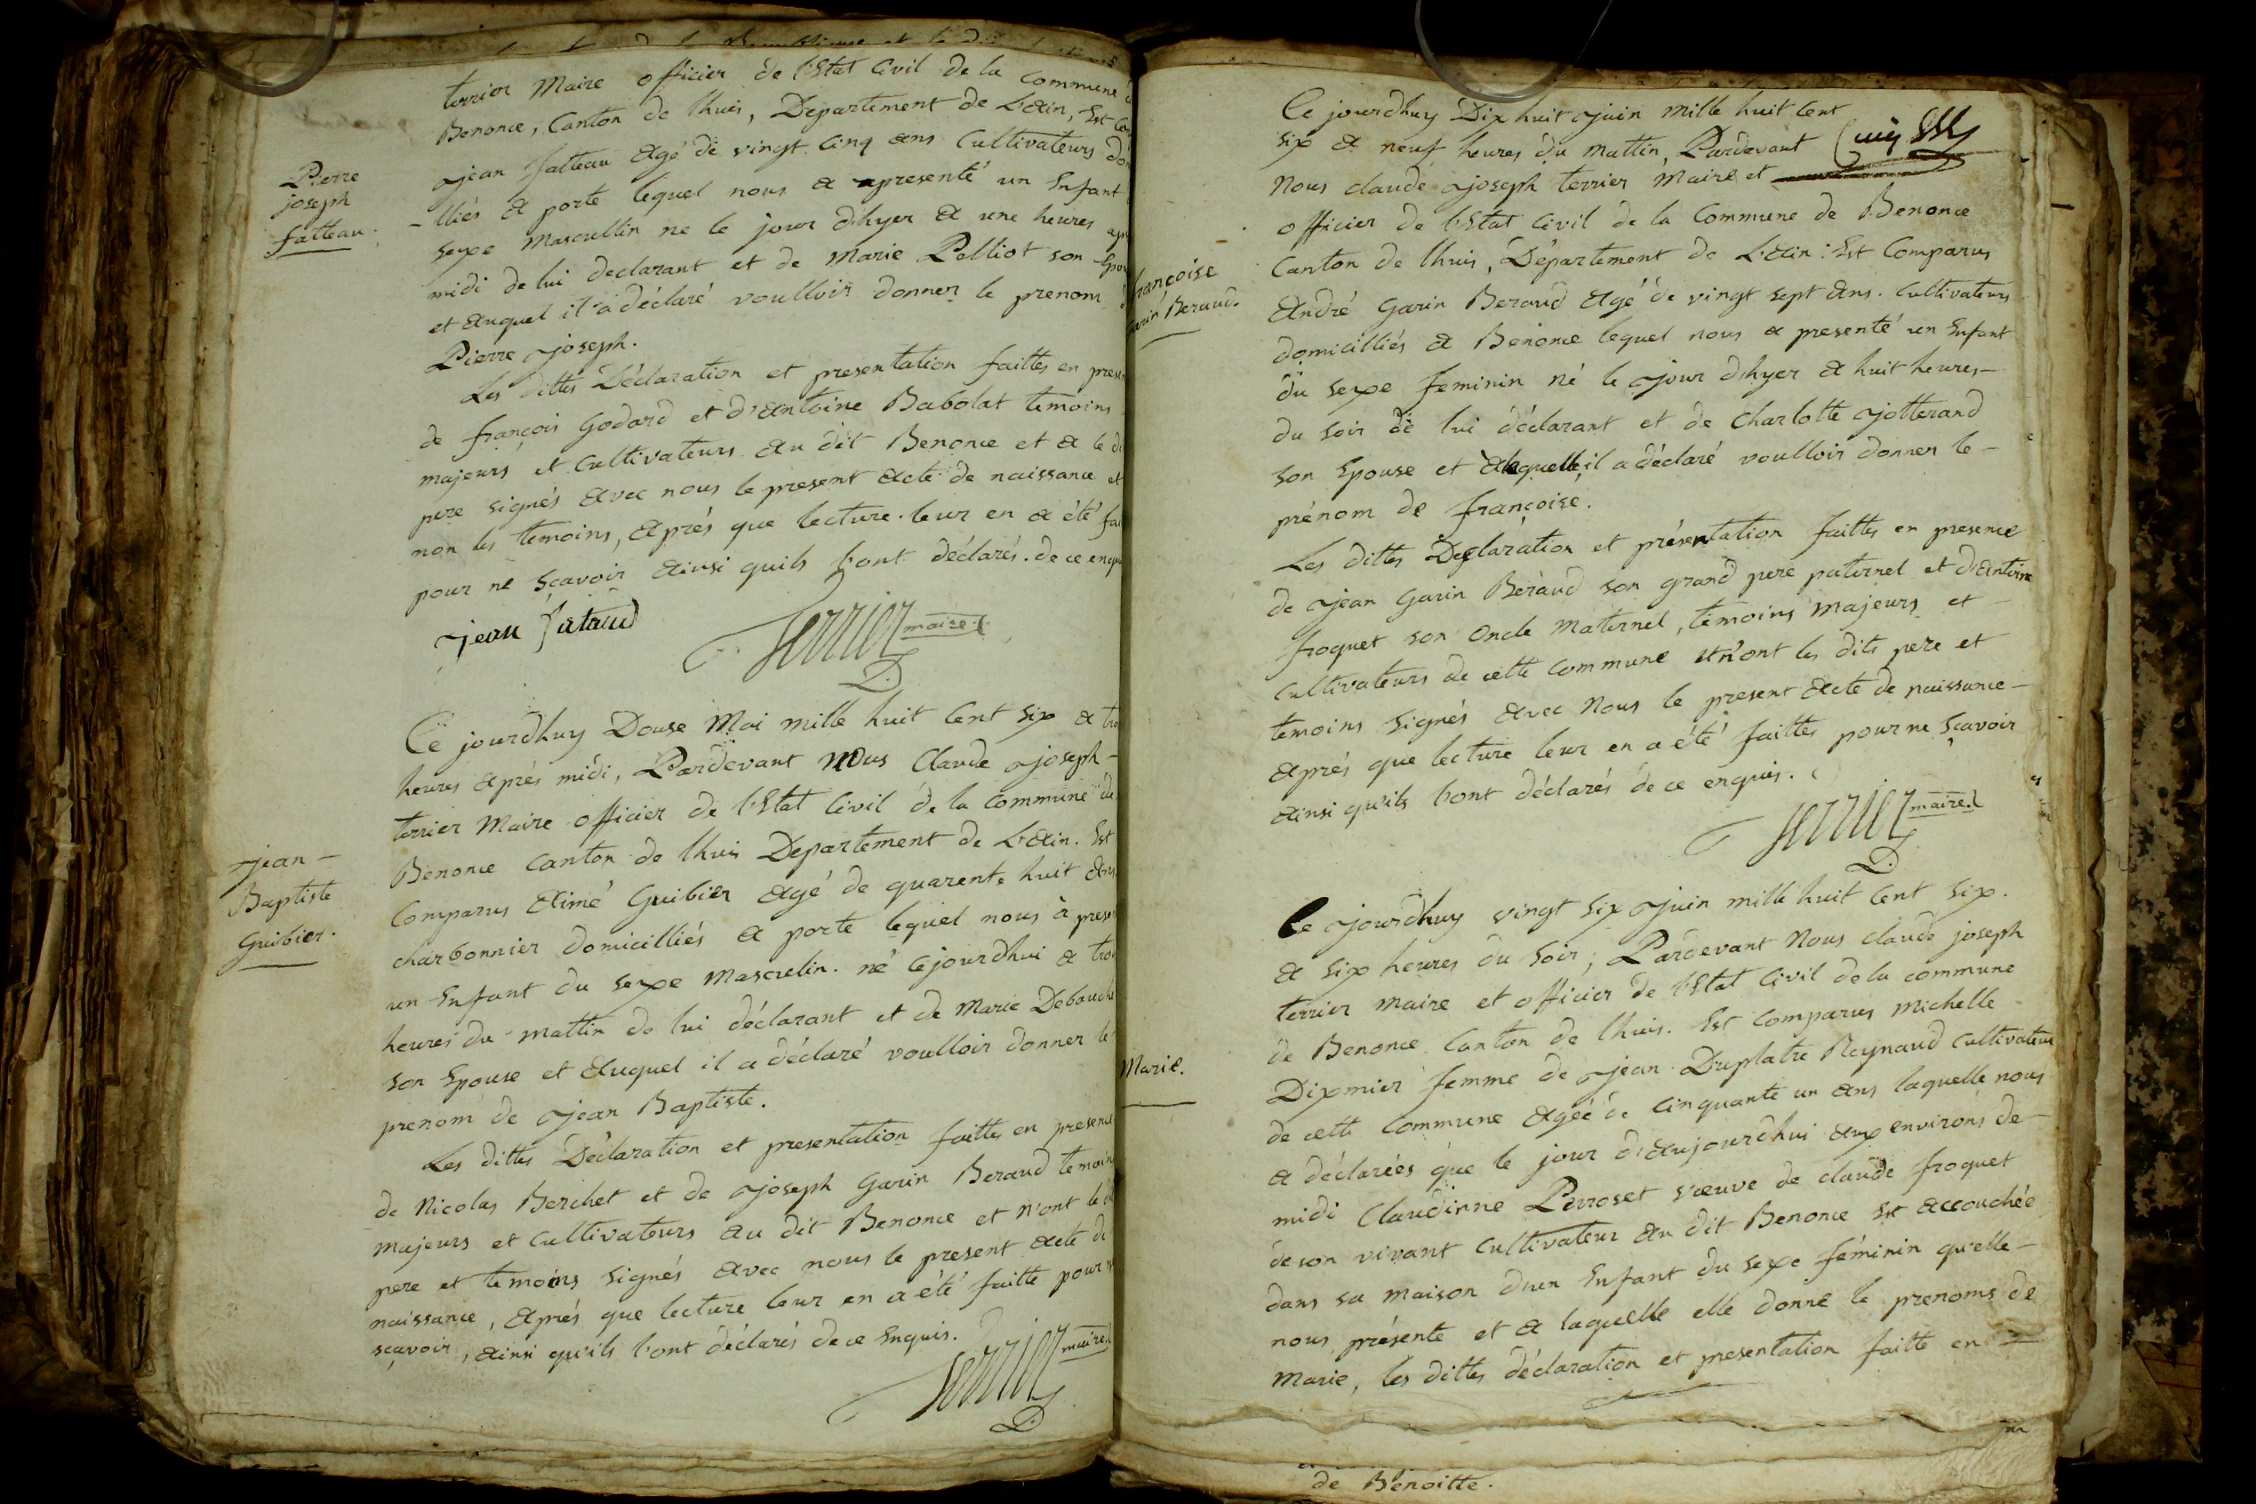 terrier Maire officier de l'Etat Civil de la Commune
Benonce, Canton de lhuis, Departement de L'Ain, Est
jean fatteau Agé de vingt cinq ans Cultivateurs
Pierre
joseph
fatteau.
-lliés A porte lequel nous a apresenté un Enfant
sexe Mascullin ne le jour d'hyer A une heures
midi de lui declarant et de Marie Pelliot son
et Auquel il a déclaré voulloir donner le prenom
Pierre joseph.
Les dittes Déclaration et presentation faittes en
de françois Godard et d'Antoine Babolat temoins
majeurs et Cultivateurs Au dit Benonce et A le
pere signés Avec nous le present Acte de naissance et
non les temoins, Après que lecture leur en a été
pour ne sçavoir Ainsi quils l'ont déclarés. de ce
jean fataud
Terrier maire
D
Ce jourdhuy Douse Mai mille huit Cent six A
heures Après midi, Pardevant Nous Claude joseph-
terrier Maire officier de l'Etat Civil de la Commune de
Benonce Canton de lhuis Departement de L'Ain. Est
jean-
Baptiste
Guibier.
Comparus Aimé Guibier Agé de quarente huit Ans
charbonnier domicilliés A porte lequel nous à
un Enfant du sexe Masculin. né cejourdhui A
heures du mattin de lui déclarant et de Marie
son Epouse et Auquel il a déclaré voulloir donner le
prenom de jean Baptiste.
Les dittes Déclaration et presentation faittes en presence
de Nicolas Berchet et de joseph Garin Beraud temoins
majeurs et Cultivateurs Au dit Benonce et N'ont
pere et temoins signés Avec nous le present Acte de
naissance, Après que lecture leur en a été faitte pour
sçavoir, Ainsi qu'ils l'ont déclarés de ce Enquis.
Terrier maire
D
Ce jourdhuy Dix huit juin Mille huit Cent
six A neuf heures du Mattin, Pardevant
Nous claude joseph terrier Maire et
officier de l'Etat Civil de la Commune de Benonce
Canton de lhuis, Département de L'Ain: Est Comparus
Garin Beraud.
André Garin Beraud Agé de vingt sept Ans. Cultivateurs
domicilliés A Benonce lequel nous a presenté un Enfant
du sexe feminin né le jour d'hyer A huit heures-
du soir de lui déclarant et de Charlotte jotterand
son Epouse et Alaquelle il a déclaré voulloir donner le-
prénom de françoise.
Les dittes Déclaration et présentation faittes en presence
de jean Garin Beraud son grand pere paternel et d'Antoine
froquet son Oncle Maternel, témoins Majeurs et
Cultivateurs de cette Commune et n'ont les dits pere et
temoins signés Avec Nous le present Acte de naissance-
Après que lecture leur en a été faittes pour ne sçavoir
Ainsi qu'ils l'ont déclarés de ce enquis.
Terrier maire
D
Ce jourdhuy vingt six juin mille huit Cent six.
A six heures du soir, Pardevant Nous claude joseph
terrier maire et officier de l'Etat Civil de la commune
de Benonce Canton de lhuis. Est Comparus Michelle
Marie.
Dixmier femme de jean Duplatre Reynaud Cultivateur
de cette Commune Agée de Cinquante un Ans laquelle nous
A déclarées que le jour d'Aujourdhui Aux environs de-
midi Claudinne Perroset vœuve de claude froquet
de son vivant Cultivateur Au dit Benonce Est Accouchée
dans sa Maison d'un Enfant du sexe féminin qu'elle-
nous présente et A laquelle elle donne le prenoms de
Marie, les dittes déclaration et presentation faitte en
de Benoitte.